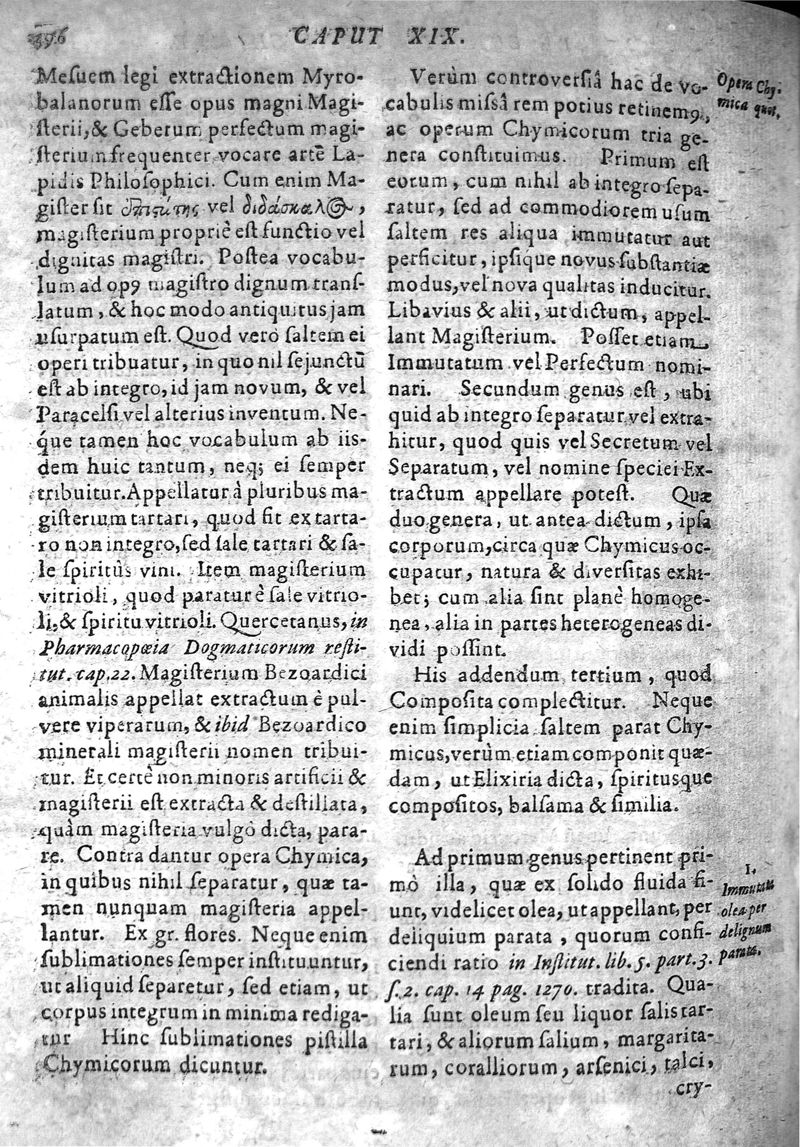 396
CAPUT XIX.
Meſuem legi extractionem Myro-
balanorum eſſe opus magni Magi-
ſterii, & Geberum perfectum magi-
ſterium frequenter vocare artẽ La-
pidis Philoſophici. Cum enim Ma-
giſter ſit vel διδάσκαλος,
magiſterium propriè eſt functio vel
dignitas magiſtri. Poſtea vocabu-
lum ad opꝰ magiſtro dignum tranſ-
latum, & hoc modo antiquitus jam
uſurpatum eſt. Quod verò ſaltem ei
operi tribuatur, in quo nil ſejunctũ
eſt ab integro, id jam novum, & vel
Paracelſi vel alterius inventum. Ne-
que tamen hoc vocabulum ab iis-
dem huic tantum, neq; ei ſemper
tribuitur. Appellatur à pluribus ma-
giſterium tartari, quod fit ex tarta-
ro non integro, ſed ſale tartari & ſa-
le ſpiritûs vini. Item magiſterium
vitrioli, quod paratur è ſale vitrio-
li, & ſpiritu vitrioli. Quercetanus, in
Pharmacopœia Dogmaticorum reſti-
tut. cap. 22. Magiſterium Bezoardici
animalis appellat extractum è pul-
vere viperarum, & ibid Bezoardico
minerali magiſterii nomen tribui-
tur. Et certè non minoris artificii &
magiſterii eſt extracta & deſtillata,
quàm magiſteria vulgò dicta, para-
re. Contra dantur opera Chymica,
in quibus nihil ſeparatur, quæ ta-
men nunquam magiſteria appel-
lantur. Ex gr. flores. Neque enim
ſublimationes ſemper inſtituuntur,
ut aliquid ſeparetur, ſed etiam, ut
corpus integrum in minima rediga-
tur Hinc ſublimationes piſtilla
Chymicorum dicuntur.
Verùm controverſiâ hac de vo-
cabulis miſſâ rem potius retinemꝰ,
ac operum Chymicorum tria ge-
nera conſtituimus. Primum eſt
eorum, cum nihil ab integro ſepa-
ratur, ſed ad commodiorem uſum
ſaltem res aliqua immutatur aut
perficitur, ipſique novus ſubſtantiæ
modus, vel nova qualitas inducitur.
Libavius & alii, ut dictum, appel-
lant Magiſterium. Poſſet etiam
Immutatum vel Perfectum nomi-
nari. Secundum genus eſt, ubi
quid ab integro ſeparatur vel extra-
hitur, quod quis vel Secretum vel
Separatum, vel nomine ſpeciei Ex-
tractum appellare poteſt. Quæ
duo genera, ut antea dictum, ipſa
corporum, circa quæ Chymicus oc-
cupatur, natura & diverſitas exhi-
bet; cum alia ſint planè homoge-
nea, alia in partes heterogeneas di-
vidi poſſint.
His addendum tertium, quod
Compoſita complectitur. Neque
enim ſimplicia ſaltem parat Chy-
micus, verùm etiam componit quæ-
dam, ut Elixiria dicta, ſpiritusque
compoſitos, balſama & ſimilia.
Ad primum genus pertinent pri-
mò illa, quæ ex ſolido fluida fi-
unt, videlicet olea, ut appellant, per
deliquium parata, quorum confi-
ciendi ratio in Inſtitut. lib. 5. part. 3.
ſ. 2. cap. 14 pag. 1270. tradita. Qua-
lia ſunt oleum ſeu liquor ſalis tar-
tari, & aliorum ſalium, margarita-
rum, coralliorum, arſenici, talci,
cry-
Opera Chy-
mica quot.
1.
Immutata
olea per
delignum
parata.